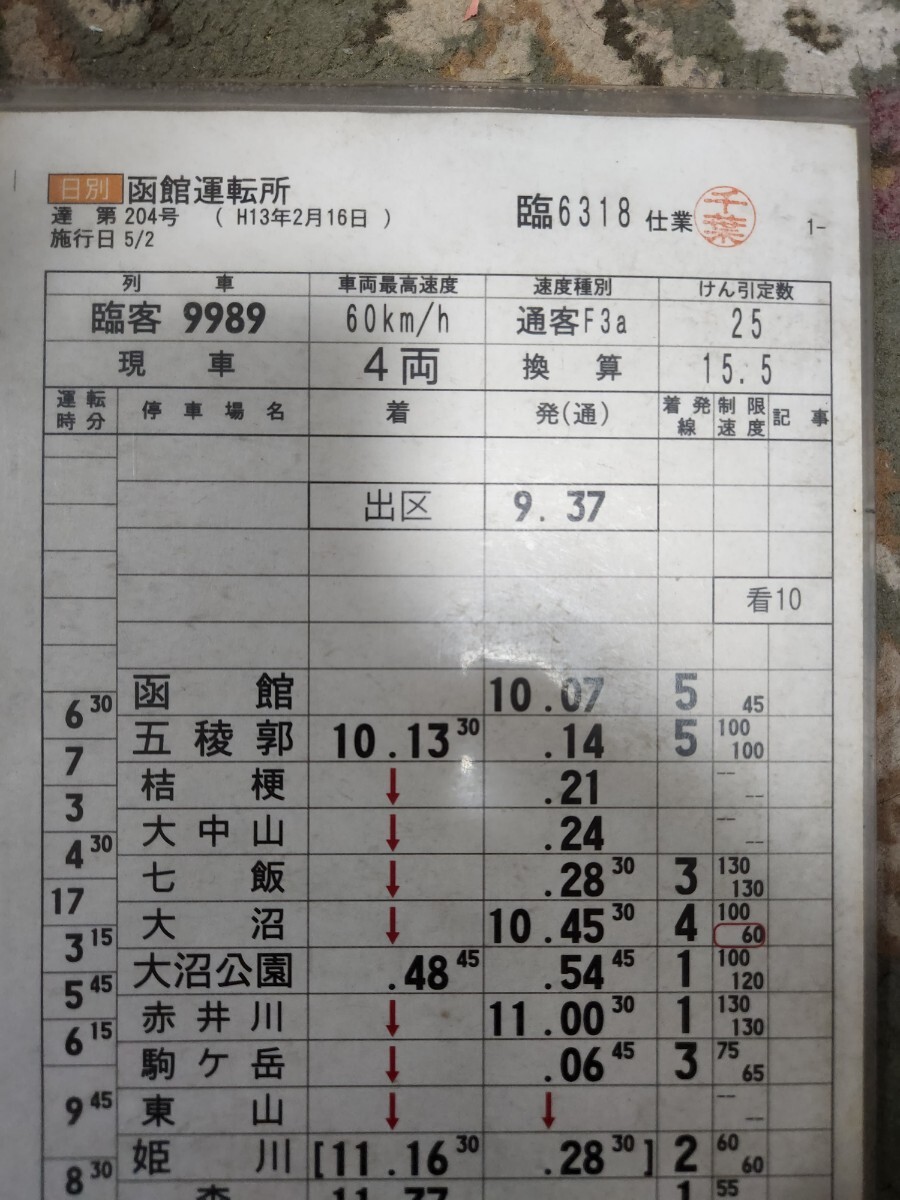 日別 函館運転所
達 第204号 ( H13年2月16日 )
施行日 5/2
臨6318 仕業 千葉 1-
列 車 車両最高速度 速度種別 けん引定数
臨客 9989 60km/h 通客F3a 25
現 車 4両 換 算 15.5
運転時分 停車場名 着 発(通) 着発線 制限速度 記 事
出区 9.37
看10
函 館 10.07 5 45
6 30
五稜郭 10.13 30 .14 5 100 100
7
桔 梗 ↓ .21 -- --
3
大中山 ↓ .24 -- --
4 30
七 飯 ↓ .28 30 3 130 130
17
大 沼 ↓ 10.45 30 4 100 60
3 15
大沼公園 .48 45 .54 45 1 100 120
5 45
赤井川 ↓ 11.00 30 1 130 130
6 15
駒ケ岳 ↓ .06 45 3 75 65
東 山 ↓ ↓ -- --
9 45
姫 川 [11.16 30 .28 30 ] 2 60 60
8 30
森 11.37 1 55